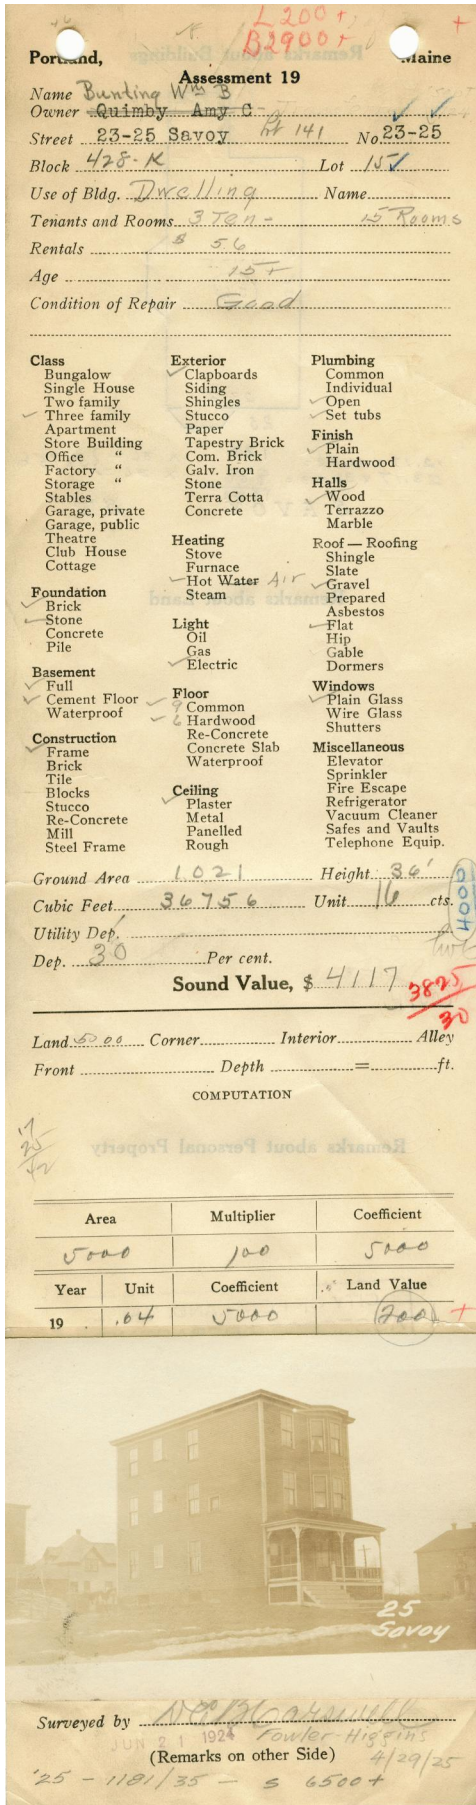 L 200 +
B 2900 +
+
Portland, Maine
Assessment 19
Name Bunting Wm B
Owner Quimby Amy C
Street 23-25 Savoy Lt 141 No. 23-25
Block 428-K Lot 15
Use of Bldg. Dwelling Name
Tenants and Rooms 3 Ten- 15 Rooms
Rentals $ 56
Age 15+
Condition of Repair Good
Class
Bungalow
Single House
Two family
✓ Three family
Apartment
Store Building
Office "
Factory "
Storage "
Stables
Garage, private
Garage, public
Theatre
Club House
Cottage
Foundation
✓ Brick
✓ Stone
Concrete
Pile
Basement
✓ Full
✓ Cement Floor
Waterproof
Construction
✓ Frame
Brick
Tile
Blocks
Stucco
Re-Concrete
Mill
Steel Frame
Exterior
✓ Clapboards
Siding
Shingles
Stucco
Paper
Tapestry Brick
Com. Brick
Galv. Iron
Stone
Terra Cotta
Concrete
Heating
Stove
Furnace
✓ Hot Water Air
Steam
Light
Oil
Gas
✓ Electric
Floor
✓ 9 Common
✓ 6 Hardwood
Re-Concrete
Concrete Slab
Waterproof
Ceiling
✓ Plaster
Metal
Panelled
Rough
Plumbing
Common
Individual
✓ Open
✓ Set tubs
Finish
✓ Plain
Hardwood
Halls
✓ Wood
Terrazzo
Marble
Roof — Roofing
Shingle
Slate
✓ Gravel
Prepared
Asbestos
✓ Flat
Hip
Gable
Dormers
Windows
✓ Plain Glass
Wire Glass
Shutters
Miscellaneous
Elevator
Sprinkler
Fire Escape
Refrigerator
Vacuum Cleaner
Safes and Vaults
Telephone Equip.
Ground Area 1021 Height 36'
Cubic Feet 36756 Unit 16 cts.
4000
Utility Dep.
Dep. 30 Per cent.
Sound Value, $ 4117
3825
30
Land 5000 Corner Interior Alley
Front Depth = ft.
COMPUTATION
17
25
42
Area Multiplier Coefficient
5000 100 5000
Year Unit Coefficient Land Value
19 .04 5000 200 +
25
Savoy
Surveyed by
JUN 21 1924 Fowler-Higgins
(Remarks on other Side) 4/29/25
'25 - 1181/35 - $ 6500 +